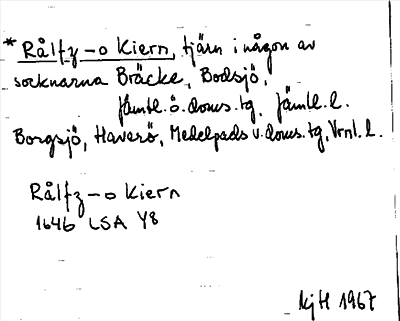 * Rålfz-o Kiern, tjärn i någon av
socknarna Bräcke, Bodsjö,
Jämtl. ö. doms. tg, Jämtl. l.
Borgsjö, Haverö, Medelpads v. doms. tg, Vrnl. l.
Rålfz-o Kiern
1646 LSA Y8
KjH 1967